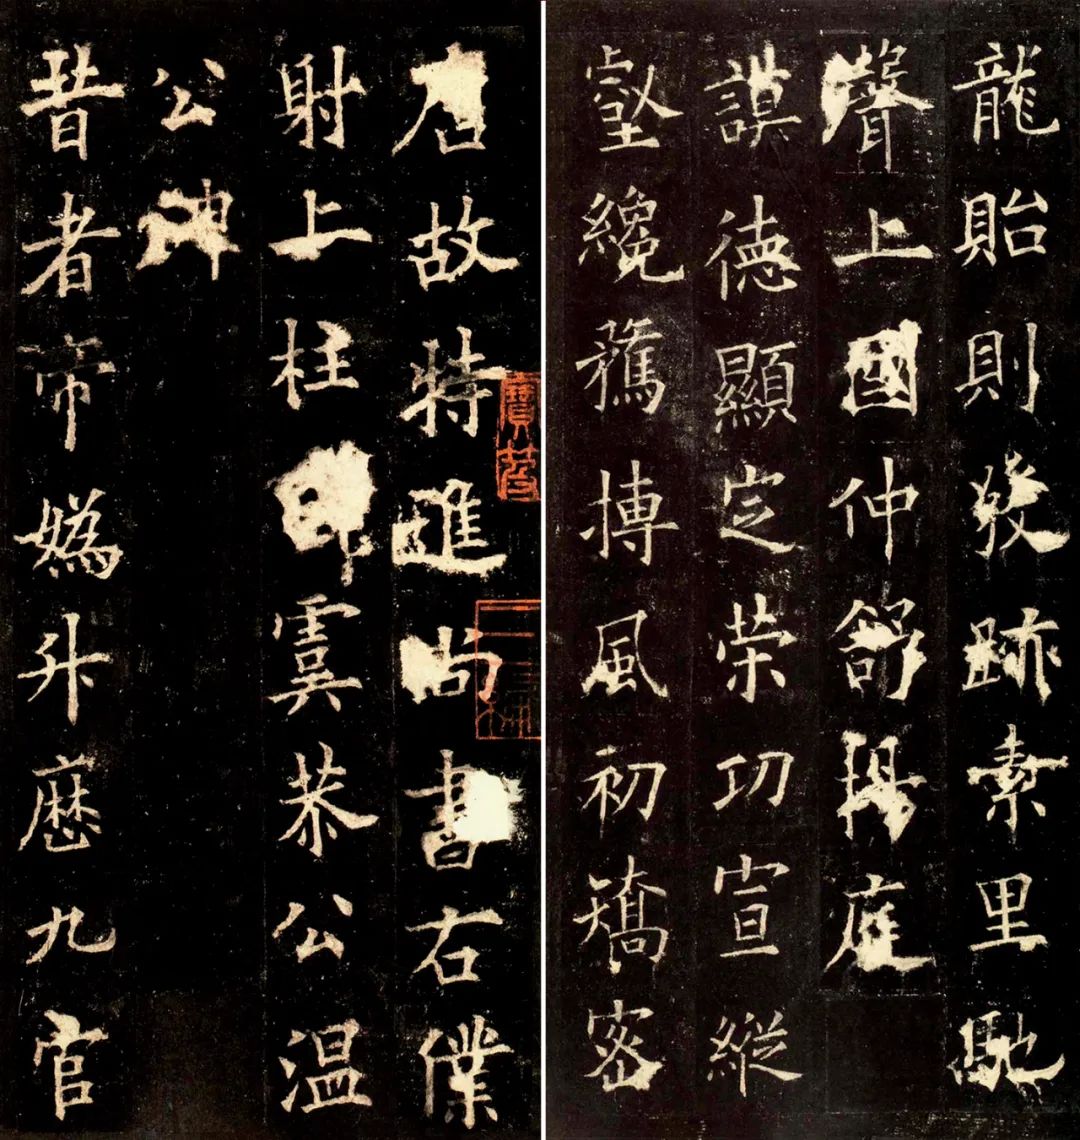 唐故特進尚書右僕
射上柱虞恭公温
公碑
昔者帝媯升歷九官
龍貽則發跡素里馳
聲上國仲舒揚庭
謨德顯定荣功宣縱
壑纔鶱摶風初矯密